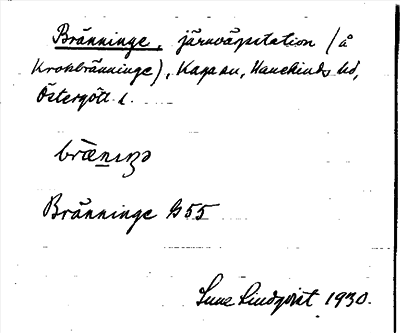 Bränninge, järnvägsstation (å
Krokbränninge), Kaga sn, Hanekinds hd,
Östergötl.
Bränninge G55
Sune Lindqvist 1930.